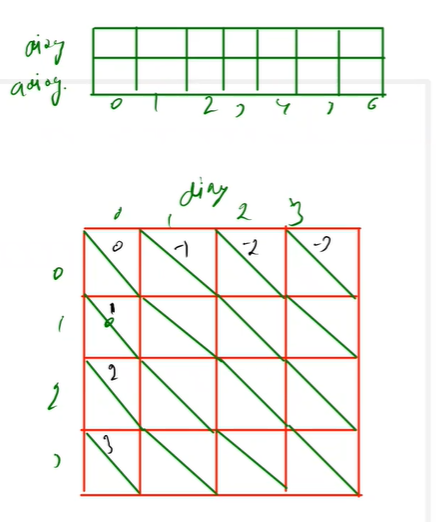 diag
adiag.
0 1 2 3 4 5 6
diag
0 1 2 3
0 0 -1 -2 -3
1 1
2 2
3 3